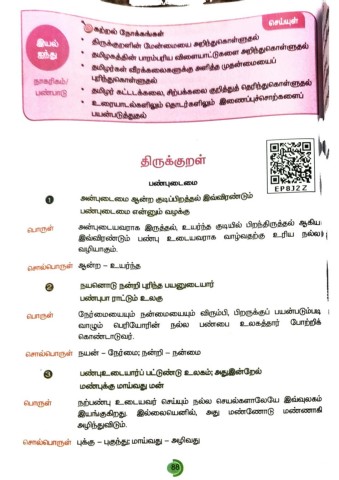 செய்யுள்
இயல்
ஐந்து
நாகரிகம்/
பண்பாடு
கற்றல் நோக்கங்கள்
• திருக்குறளின் மேன்மையை அறிந்துகொள்ளுதல்
• தமிழகத்தின் பாரம்பரிய விளையாட்டுகளை அறிந்துகொள்ளுதல்
• தமிழர்கள் வீரக்கலைகளுக்கு அளித்த முதன்மையைப்
புரிந்துகொள்ளுதல்
• தமிழர் கட்டடக்கலை, சிற்பக்கலை குறித்துத் தெரிந்துகொள்ளுதல்
• உரையாடல்களிலும் தொடர்களிலும் இணைப்புச்சொற்களைப்
பயன்படுத்துதல்
திருக்குறள்
EPBJ2Z
பண்புடைமை
1 அன்புடைமை ஆன்ற குடிப்பிறத்தல் இவ்விரண்டும்
பண்புடைமை என்னும் வழக்கு
பொருள் அன்புடையவராக இருத்தல், உயர்ந்த குடியில் பிறந்திருத்தல் ஆகிய
இவ்விரண்டும் பண்பு உடையவராக வாழ்வதற்கு உரிய நல்ல
வழியாகும்.
சொல்பொருள் ஆன்ற – உயர்ந்த
2 நயனொடு நன்றி புரிந்த பயனுடையார்
பண்புபா ராட்டும் உலகு
பொருள் நேர்மையையும் நன்மையையும் விரும்பி, பிறருக்குப் பயன்படும்படி
வாழும் பெரியோரின் நல்ல பண்பை உலகத்தார் போற்றிக்
கொண்டாடுவர்.
சொல்பொருள் நயன் – நேர்மை; நன்றி – நன்மை
3 பண்புஉடையார்ப் பட்டுண்டு உலகம்; அதுஇன்றேல்
மண்புக்கு மாய்வது மன்
பொருள் நற்பண்பு உடையவர் செய்யும் நல்ல செயல்களாலேயே இவ்வுலகம்
இயங்குகிறது. இல்லையெனில், அது மண்ணோடு மண்ணாகி
அழிந்துவிடும்.
சொல்பொருள் புக்கு – புகுந்து; மாய்வது – அழிவது
88